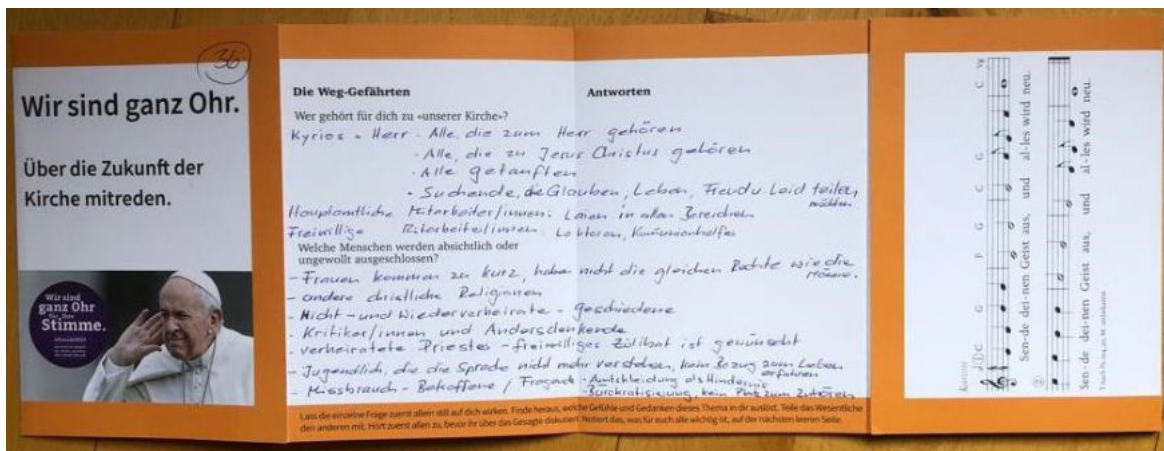 36
Wir sind ganz Ohr.
Über die Zukunft der
Kirche mitreden.
Wir sind
ganz Ohr
für Ihre
Stimme.
Die Weg-Gefährten
Antworten
Wer gehört für dich zu «unserer Kirche»?
Kyrios = Herr - Alle, die zum Herr gehören
- Alle, die zu Jesus Christus gehören
- Alle getauften
- Suchende, die Glauben, Leben, Freud u. Leid teilen
möchten
Hauptamtliche Mitarbeiter/innen: Laien in allen Bereichen
Freiwillige Mitarbeiter/innen: Lektoren, Kommunionhelfer
Welche Menschen werden absichtlich oder
ungewollt ausgeschlossen?
- Frauen kommen zu kurz, haben nicht die gleichen Rechte wie die
Männer.
- andere christliche Religionen
- Nicht- und Wiederverheirate - geschiedene
- Kritiker/innen und Andersdenkende
- verheiratete Priester - freiwilliges Zölibat ist gewünscht
- Jugendlich, die die Sprache nicht mehr verstehen, kein Bezug zum Leben
erfahren
- Missbrauch - Betroffene / - Amtskleidung als Hindernis
- Bürokratisierung, kein Platz zum Zuhören
Lass die einzelne Frage zuerst allein still auf dich wirken. Finde heraus, welche Gefühle und Gedanken dieses Thema in dir auslöst. Teile das Wesentliche
den anderen mit. Hört zuerst allen zu, bevor ihr über das Gesagte diskutiert. Notiert das, was für euch alle wichtig ist, auf der nächsten leeren Seite.
Kanon
C G G F G C G C
Sen-de dei-nen Geist aus, und al-les wird neu.
Sen-de dei-nen Geist aus, und al-les wird neu.
T: nach Ps 104,30, M: unbekannt